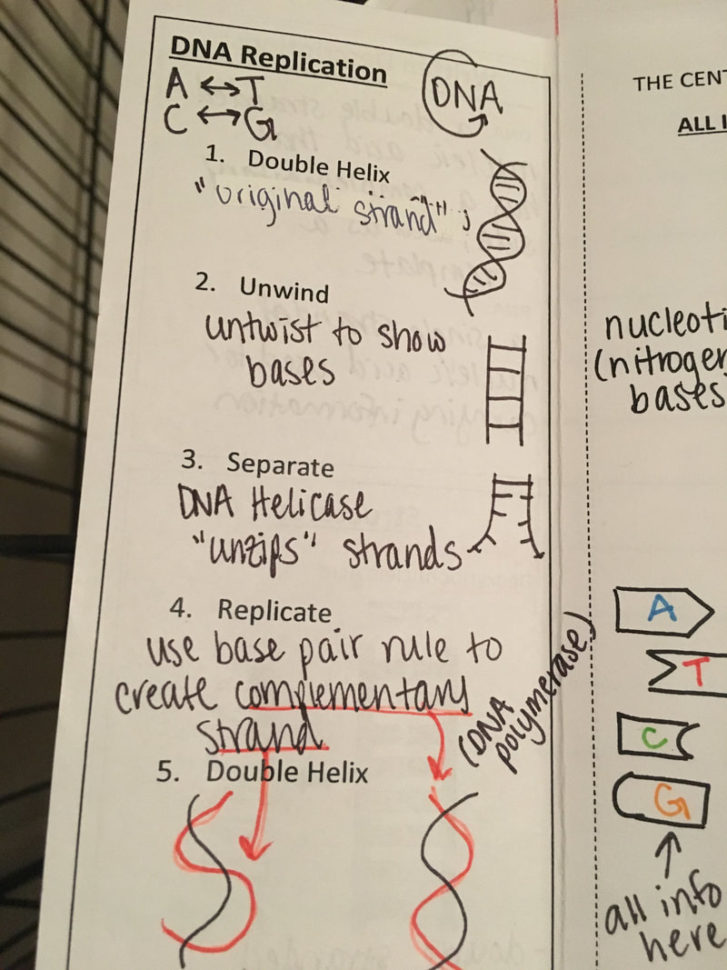 DNA Replication
A ↔ T
C ↔ G
DNA
1. Double Helix
"original strand"
2. Unwind
untwist to show
bases
3. Separate
DNA Helicase
"unzips" strands
4. Replicate
use base pair rule to
create complementary
strand
(DNA
polymerase)
5. Double Helix
THE CENT
ALL I
nucleoti
(nitrogen
bases
A
T
C
G
all info
here